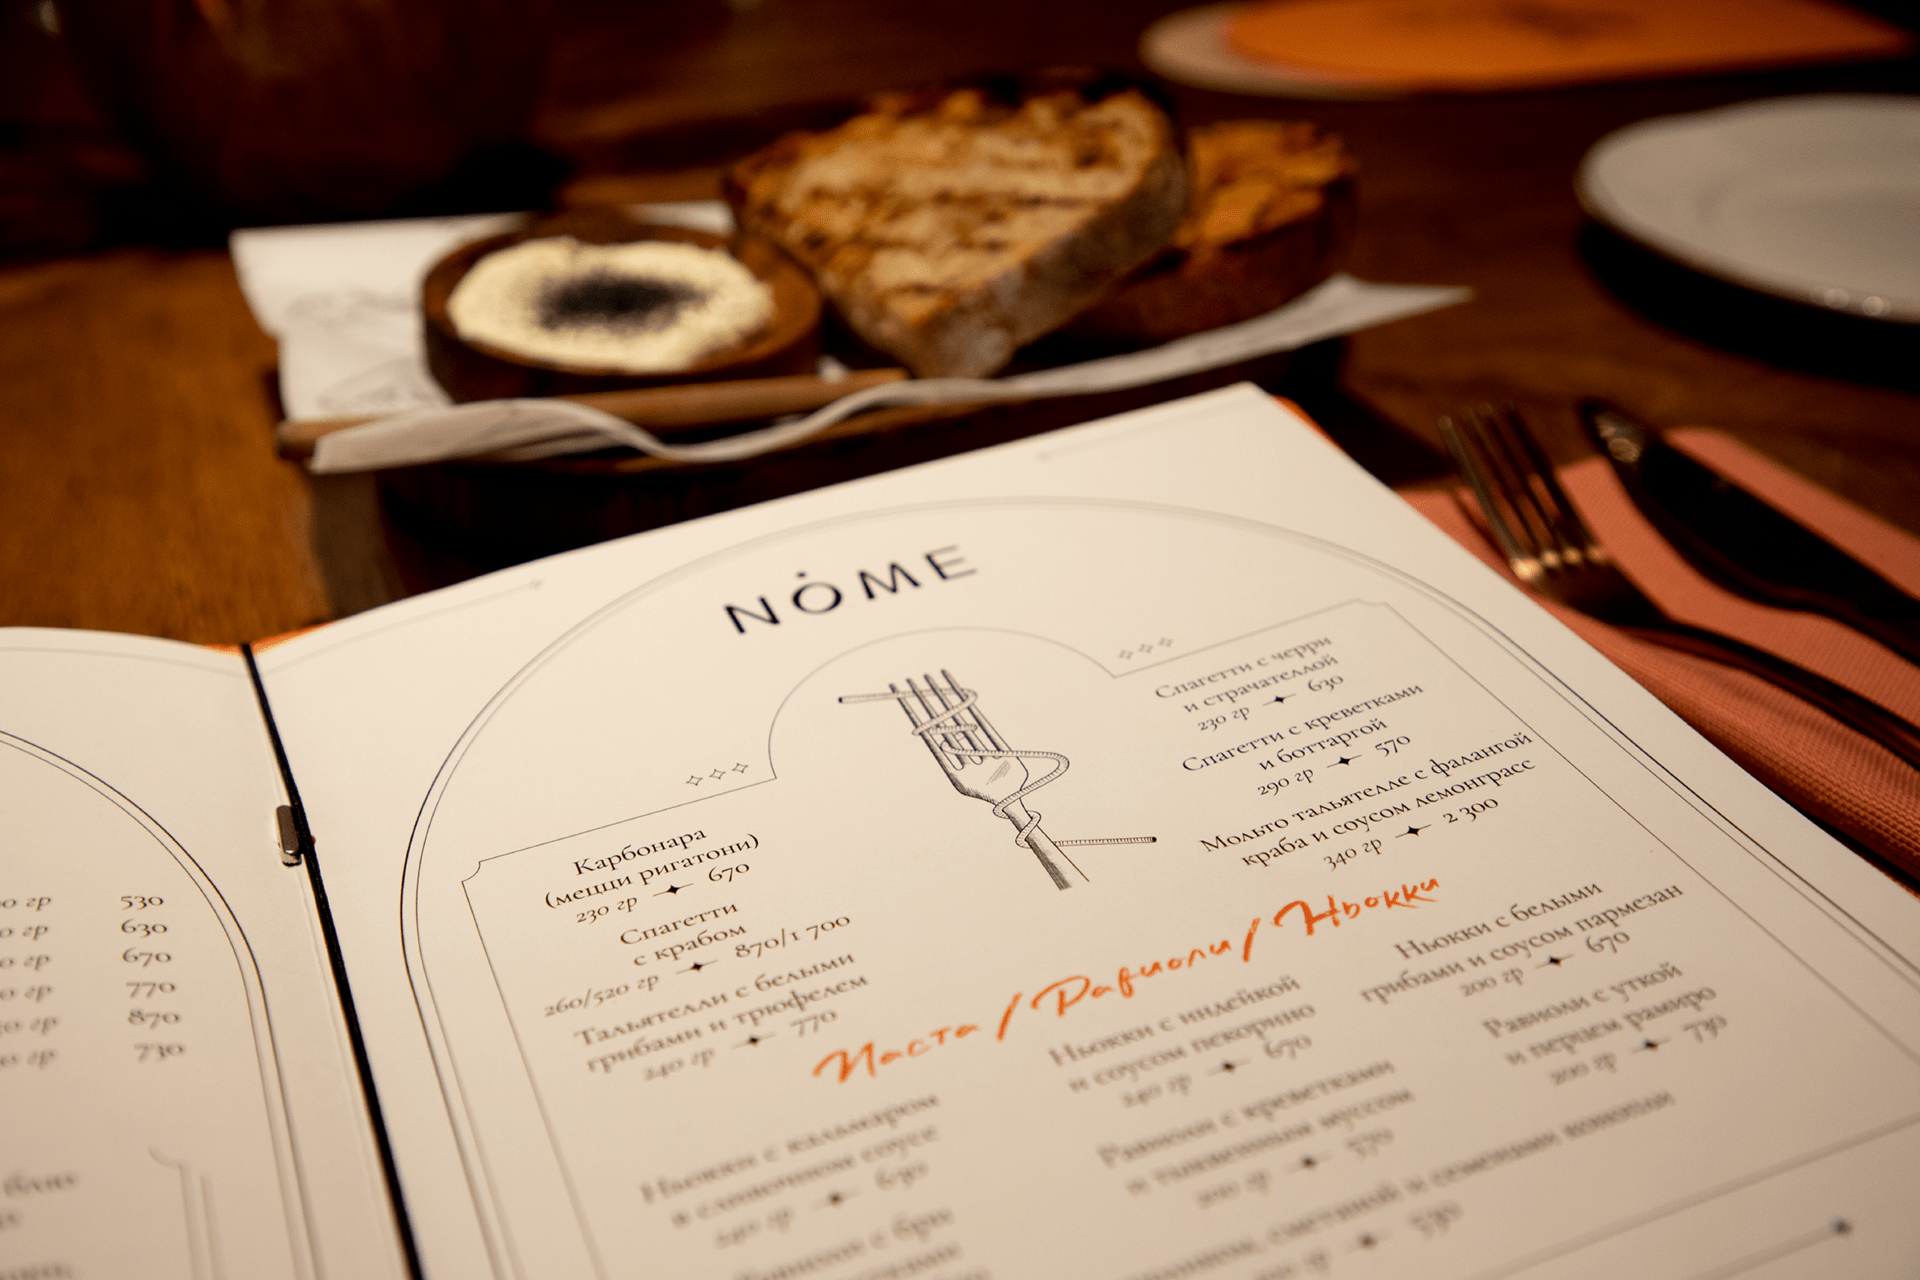 NÓME
Карбонара
(мецци ригатони)
230 гр 670
Спагетти
с крабом
260/520 гр 870/1 700
Тальятелли с белыми
грибами и трюфелем
240 гр 770
Спагетти с черри
и страчателлой
230 гр 630
Спагетти с креветками
и боттаргой
290 гр 570
Мольто тальятелле с фалангой
краба и соусом лемонграсс
340 гр 2 300
Паста / Равиоли / Ньокки
Ньокки с кальмаром
в сливочном соусе
240 гр 630
Равиоли с
Ньокки с индейкой
и соусом пекорино
240 гр 670
Равиоли с креветками
и муссом
200 гр 570
Ньокки с белыми
грибами и соусом пармезан
200 гр 670
Равиоли с уткой
и перцем рамиро
200 гр 730
сметаной и семенами конопли
530
гр 530
гр 630
гр 670
гр 770
гр 870
гр 730